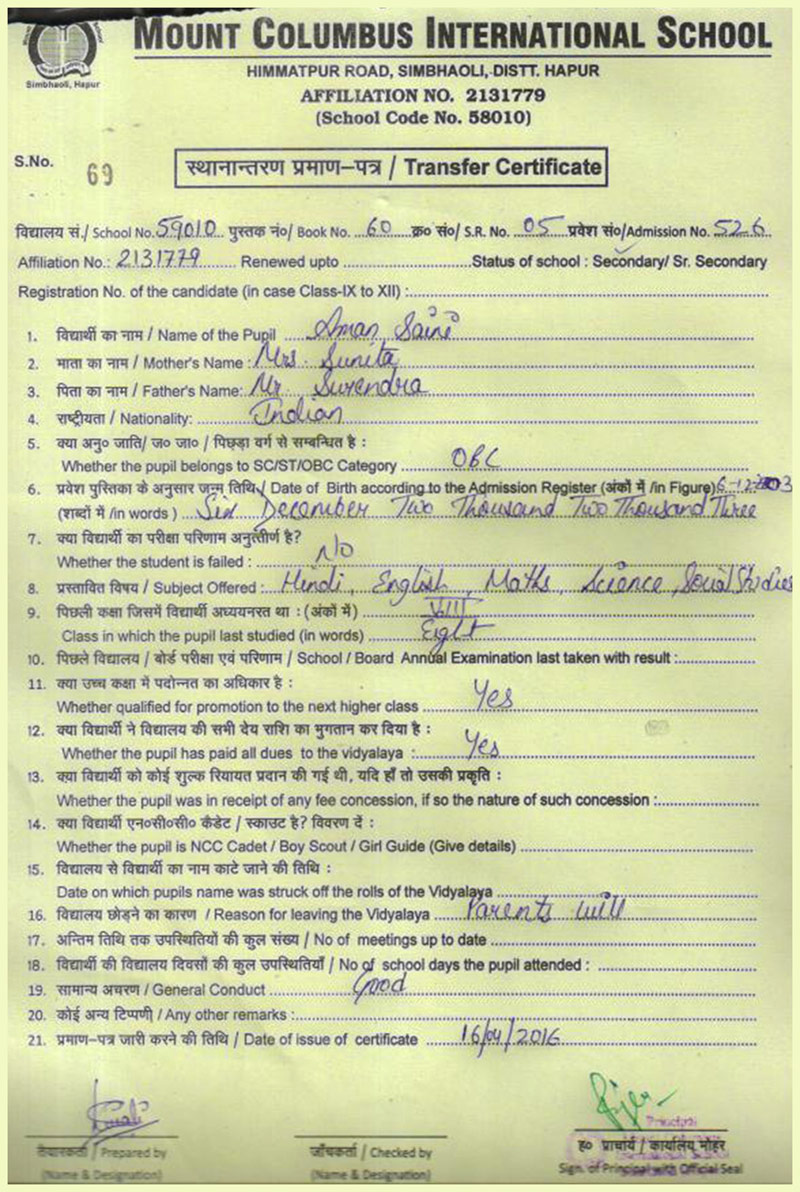 Simbhaoli, Hapur
MOUNT COLUMBUS INTERNATIONAL SCHOOL
HIMMATPUR ROAD, SIMBHAOLI, DISTT. HAPUR
AFFILIATION NO. 2131779
(School Code No. 58010)
S.No. 69
स्थानान्तरण प्रमाण–पत्र / Transfer Certificate
विद्यालय सं./ School No. 59010 पुस्तक नं०/ Book No. 60 क्र० सं०/ S.R. No. 05 प्रवेश सं०/Admission No. 526
Affiliation No.: 2131779 Renewed upto ........ Status of school : Secondary/ Sr. Secondary
Registration No. of the candidate (in case Class-IX to XII) :........
1. विद्यार्थी का नाम / Name of the Pupil Aman Saini
2. माता का नाम / Mother's Name : Mrs. Sunita
3. पिता का नाम / Father's Name: Mr. Surendra
4. राष्ट्रीयता / Nationality: Indian
5. क्या अनु० जाति/ ज० जा० / पिछड़ा वर्ग से सम्बन्धित है :
Whether the pupil belongs to SC/ST/OBC Category OBC
6. प्रवेश पुस्तिका के अनुसार जन्म तिथि / Date of Birth according to the Admission Register (अंकों में /in Figure) 6-12-2003
(शब्दों में /in words ) Six December Two Thousand Two Thousand Three
7. क्या विद्यार्थी का परीक्षा परिणाम अनुत्तीर्ण है?
Whether the student is failed : No
8. प्रस्तावित विषय / Subject Offered : Hindi, English, Maths, Science, Social Studies
9. पिछली कक्षा जिसमें विद्यार्थी अध्ययनरत था : (अंकों में) VIII
Class in which the pupil last studied (in words) Eight
10. पिछले विद्यालय / बोर्ड परीक्षा एवं परिणाम / School / Board Annual Examination last taken with result :........
11. क्या उच्च कक्षा में पदोन्नत का अधिकार है :
Whether qualified for promotion to the next higher class Yes
12. क्या विद्यार्थी ने विद्यालय की सभी देय राशि का भुगतान कर दिया है :
Whether the pupil has paid all dues to the vidyalaya : Yes
13. क्या विद्यार्थी को कोई शुल्क रियायत प्रदान की गई थी, यदि हाँ तो उसकी प्रकृति :
Whether the pupil was in receipt of any fee concession, if so the nature of such concession :........
14. क्या विद्यार्थी एन०सी०सी० कैडेट / स्काउट है? विवरण दें :
Whether the pupil is NCC Cadet / Boy Scout / Girl Guide (Give details) ........
15. विद्यालय से विद्यार्थी का नाम काटे जाने की तिथि :
Date on which pupils name was struck off the rolls of the Vidyalaya ........
16. विद्यालय छोड़ने का कारण / Reason for leaving the Vidyalaya Parents will
17. अन्तिम तिथि तक उपस्थितियों की कुल संख्य / No of meetings up to date ........
18. विद्यार्थी की विद्यालय दिवसों की कुल उपस्थितियाँ / No of school days the pupil attended : ........
19. सामान्य अचरण / General Conduct Good
20. कोई अन्य टिप्पणी / Any other remarks :........
21. प्रमाण–पत्र जारी करने की तिथि / Date of issue of certificate 16/04/2016
Principal
तैयारकर्ता / Prepared by जाँचकर्ता / Checked by ह० प्राचार्य / कार्यालय मोहर
(Name & Designation) (Name & Designation) Sign. of Principal with Official Seal